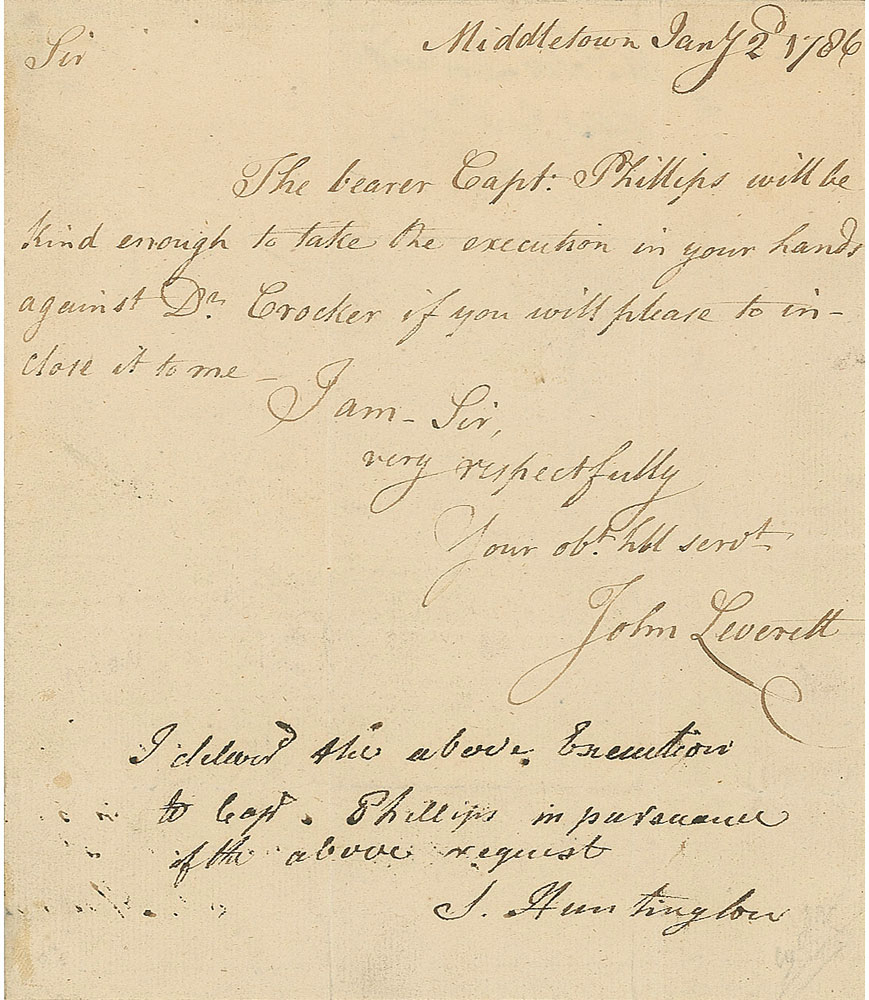 Middletown Jany 2d 1786
Sir
The bearer Capt. Phillips will be
kind enough to take the execution in your hands
against Dr. Crocker if you will please to in-
close it to me -
I am - Sir,
very respectfully
Your obt. hll servt
John Leverett
I deliver'd the above Execution
to Capt. Phillips in pursuance
of the above request
S. Huntington